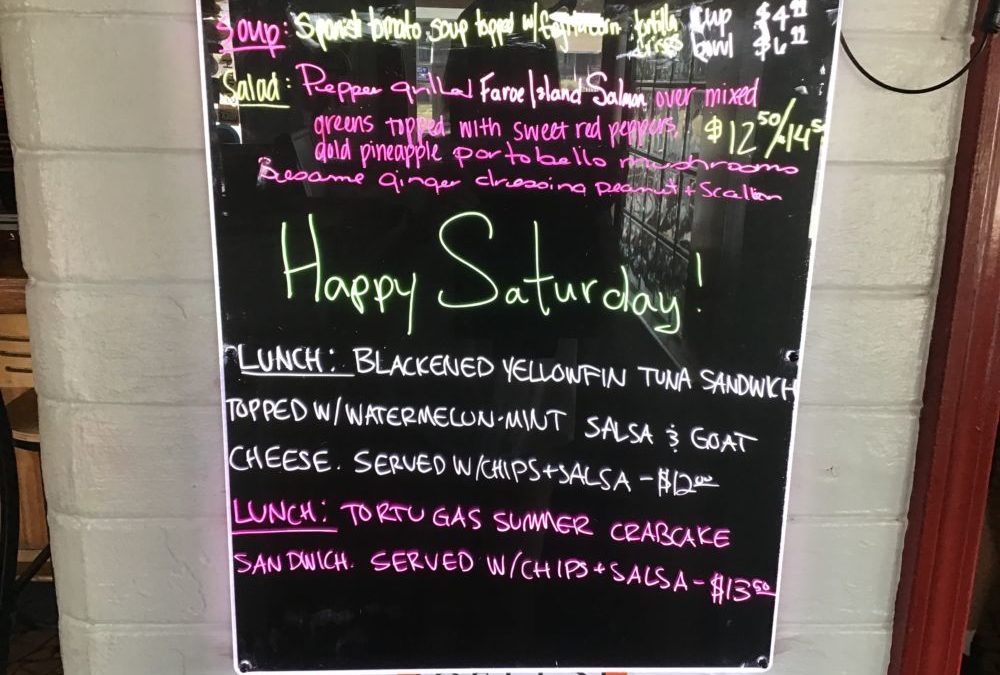 Soup: Spanish tomato soup topped w/ tortilla Cup $4.99
crisps bowl $6.99
Salad: Pepper grilled Faroe Island Salmon over mixed
greens topped with sweet red peppers, $12.50/14.5
gold pineapple portobello mushrooms
Sesame ginger dressing peanut + Scallion
Happy Saturday!
LUNCH: BLACKENED YELLOWFIN TUNA SANDWICH
TOPPED W/WATERMELON-MINT SALSA & GOAT
CHEESE. SERVED W/CHIPS+SALSA - $12.00
LUNCH: TORTUGAS SUMMER CRABCAKE
SANDWICH. SERVED W/CHIPS+SALSA - $13.50